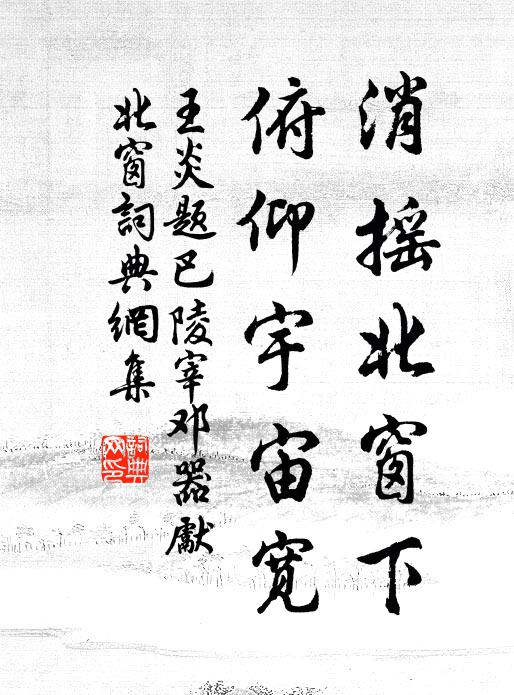 消摇北窗下
俯仰宇宙宽
王炎题巴陵宰邓器獻
北窗詞典網集
詞典
网印